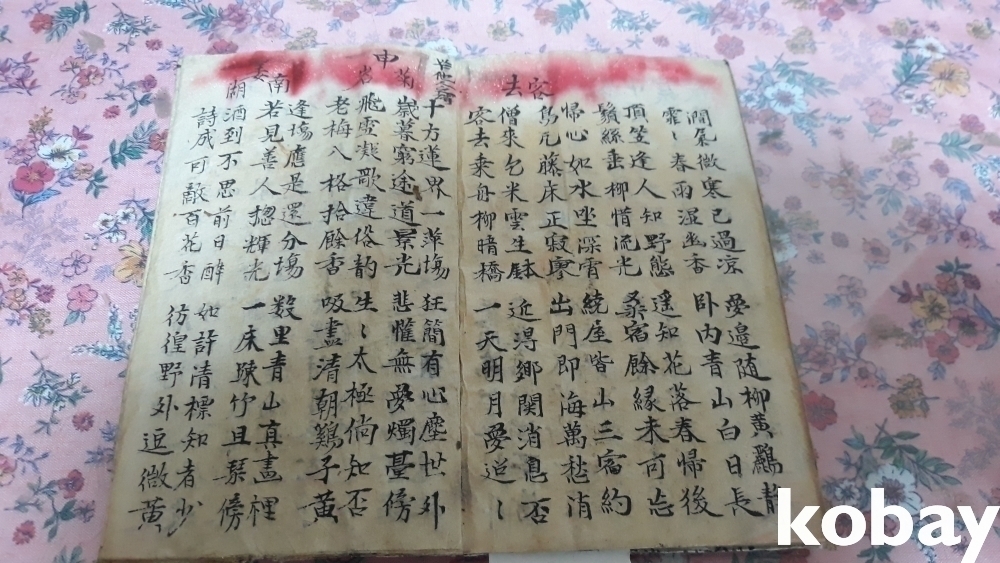 客去
澗氣微寒已過凉 夢邉随柳黃鸝静
霏〻春雨湿幽香 卧内青山白日長
頂笠逢人知野態 遥知花落春帰後
鬚絲垂柳惜流光 桑宿餘縁未可忘
帰心如水坐深霄 繞座皆山三宿約
烏几藤床正寂寥 出門即海萬愁消
僧來乞米雲生鉢 近得郷関消息否
客去乘舟柳暗橋 一天明月夢迢〻
申
南
十方蓮界一萍場 狂簡有心塵世外
歲業窮途道景光 悲懽無夢燭臺傍
飛雪凝歌違俗韵 生〻太極倘知否
老梅八格拾餘香 吸盡清朝鷄子黃
逢場應是還分場 數里青山真畫裡
若見善人揔輝光 一床踈竹且琹傍
酒到不思前日醉 如許清標知者少
詩成可敵百花香 彷徨野外逗微黃
kobay